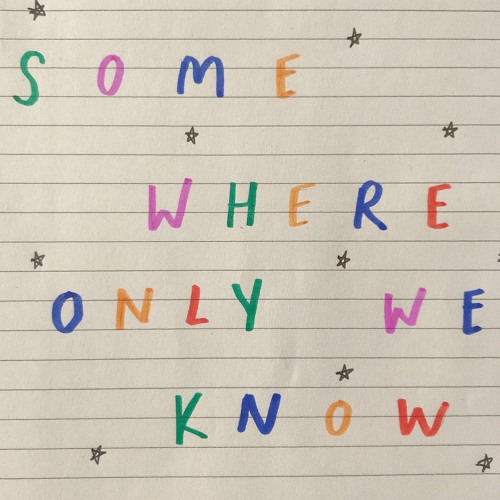 SOME
WHERE
ONLY WE
KNOW